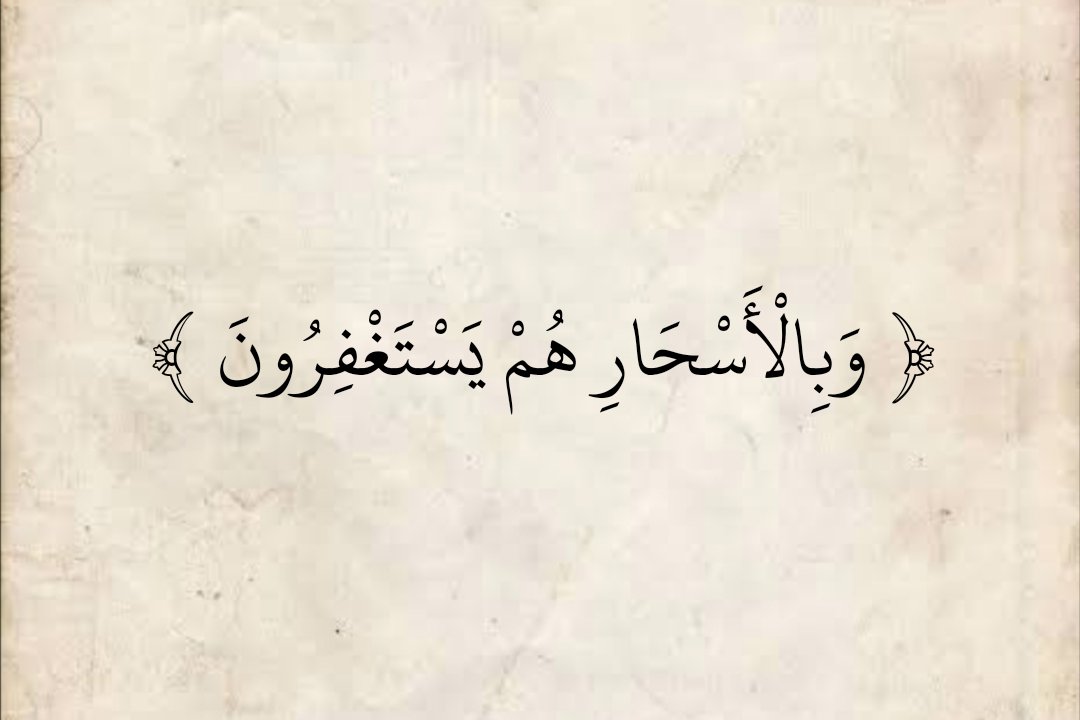 ﴿ وَبِالْأَسْحَارِ هُمْ يَسْتَغْفِرُونَ ﴾